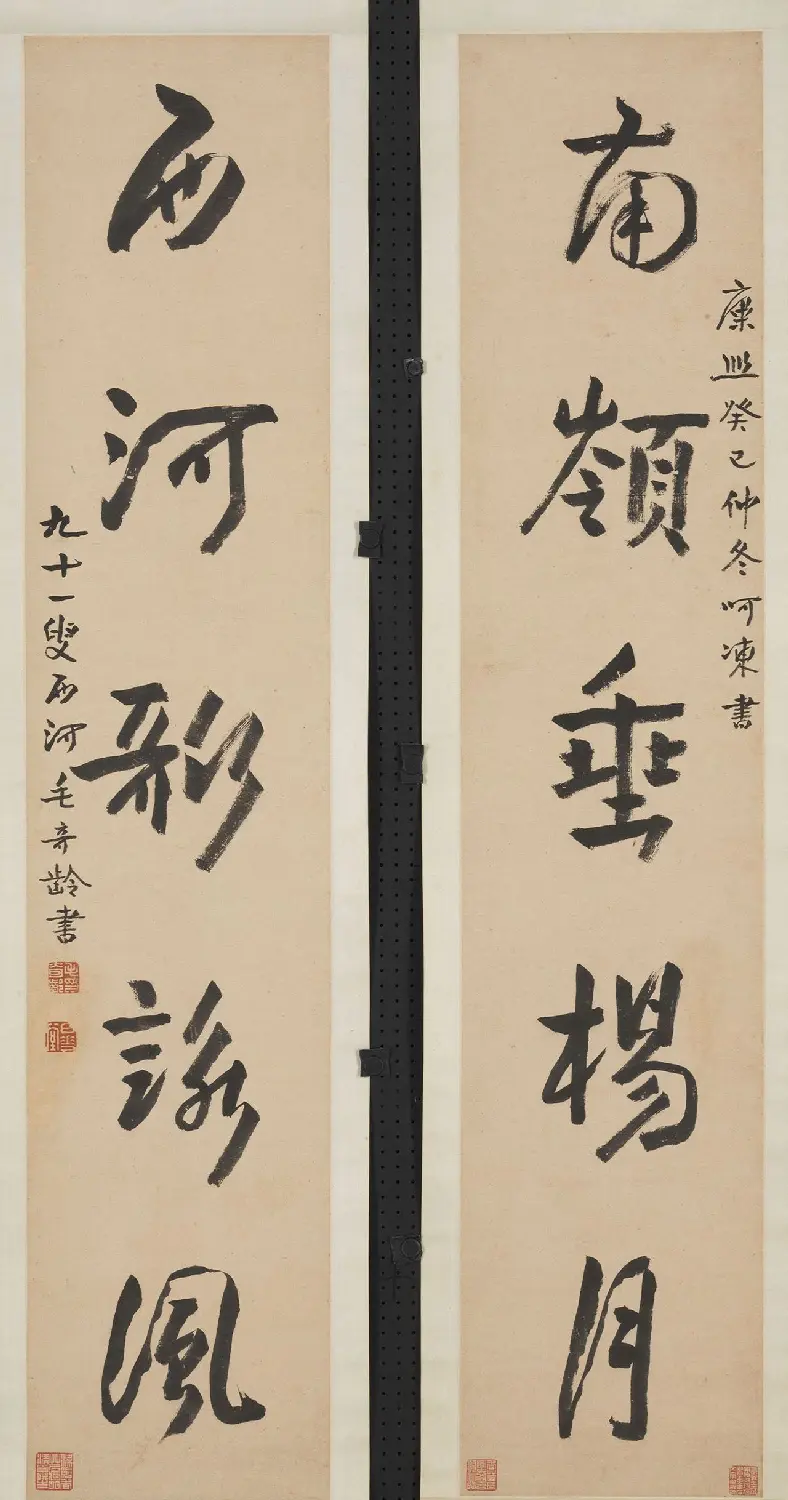 康熙癸巳仲冬呵凍書
南嶺垂楊月
西河歌詠風
九十一叟西河毛奇齡書